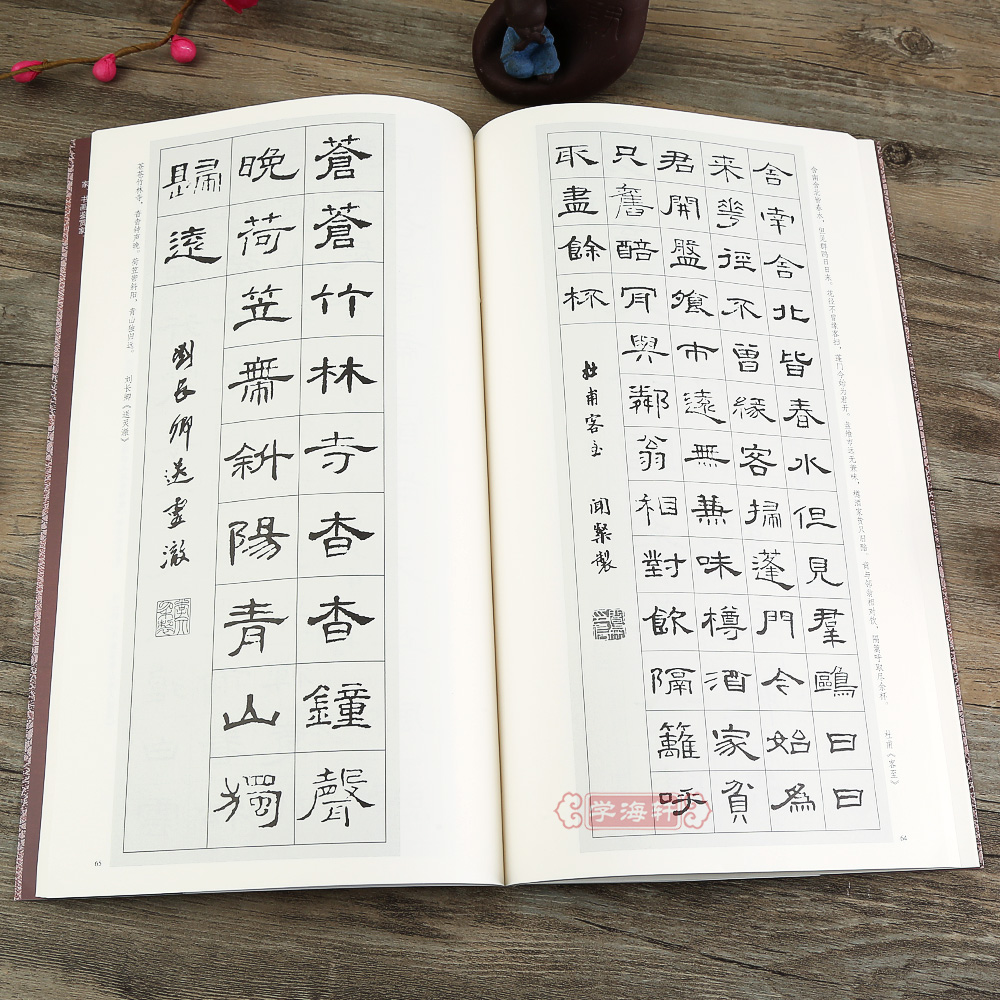 舍南舍北皆春水，但见群鸥日日来。花径不曾缘客扫，蓬门今始为君开。盘飧市远无兼味，樽酒家贫只旧醅。肯与邻翁相对饮，隔篱呼取尽余杯。
杜甫《客至》
舍南舍北皆春水但見羣鷗日日
来花徑不曾緣客掃蓬門今始為
君開盤飱市遠無兼味樽酒家貧
只舊醅肎與鄰翁相對飲隔籬呼
取盡餘杯
杜甫客至
64
蒼蒼竹林寺杳杳鐘聲
晚荷笠帶斜陽青山獨
歸遠
劉長卿送靈澈
苍苍竹林寺，杳杳钟声晚。荷笠带斜阳，青山独归远。
刘长卿《送灵澈》
65
学海轩